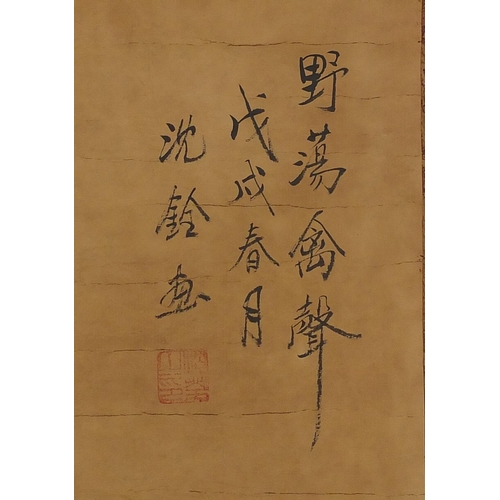 野蕩禽聲
戊戌春月
沈銓画